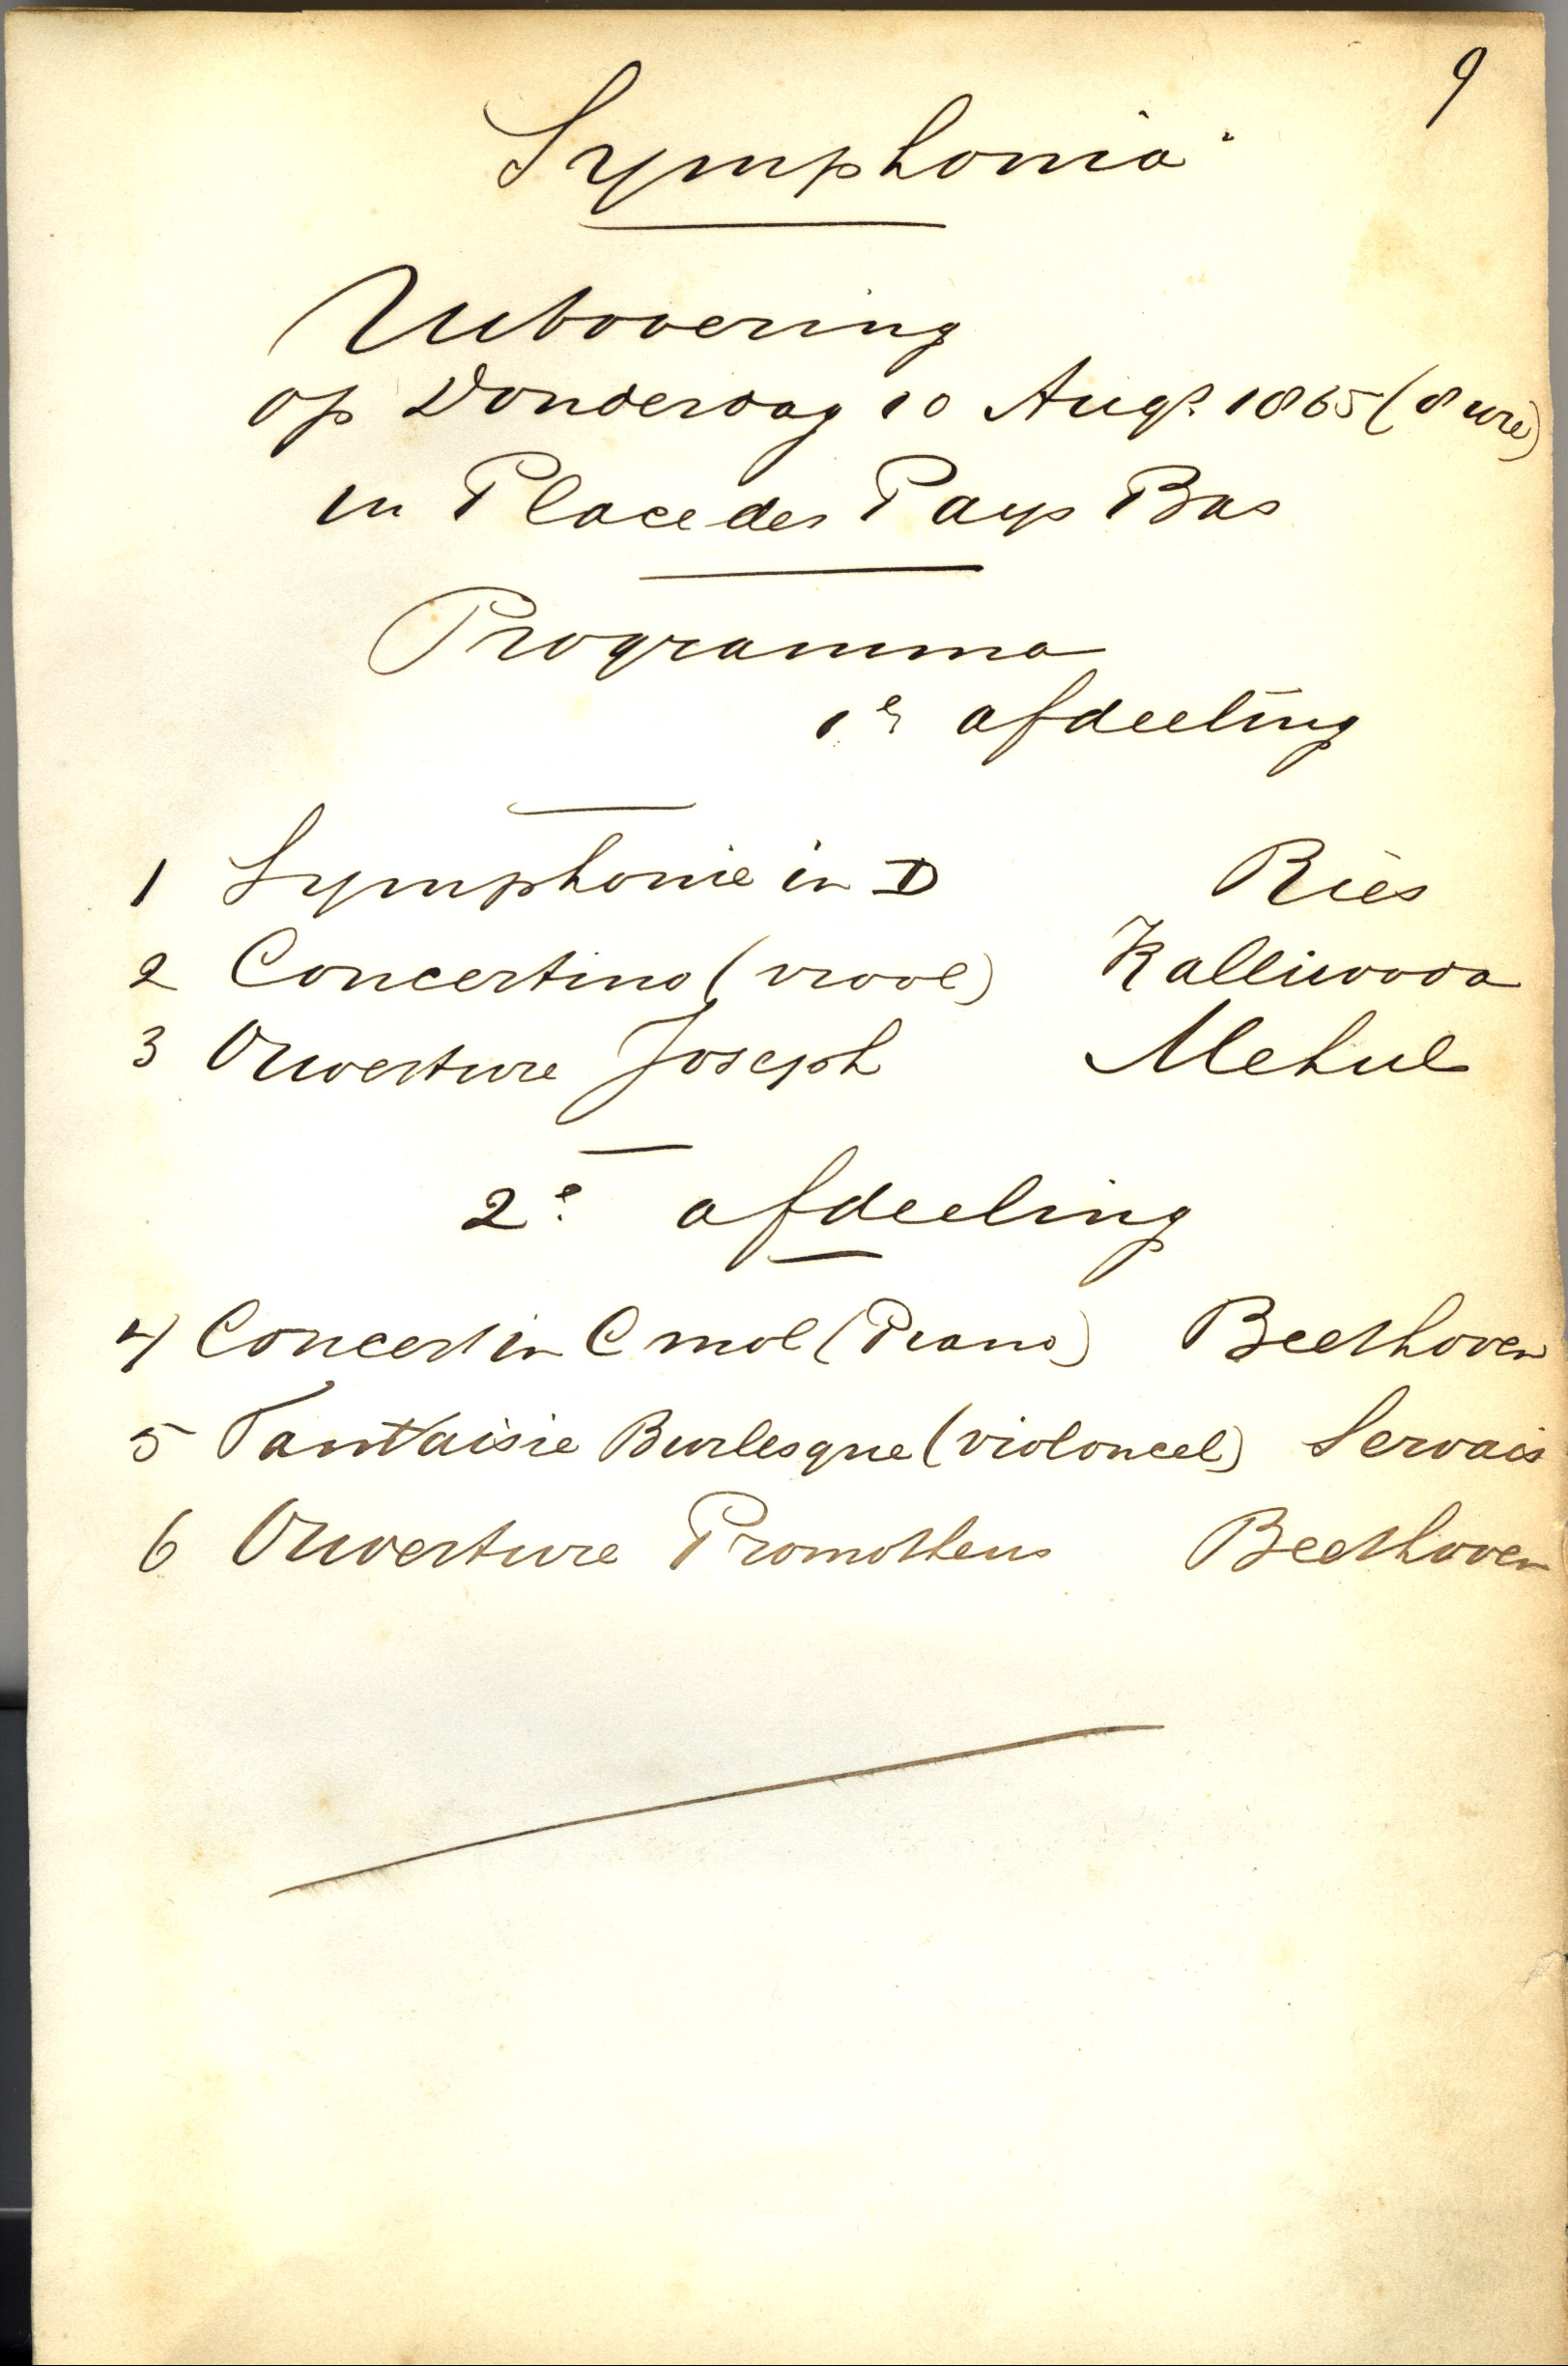 9
Symphonia
Uitvoering
op Donderdag 10 Augs. 1865 (8 ure)
in Place des Pays Bas
Programma
1e afdeeling
1 Symphonie in D Ries
2 Concertino (viool) Kalliwoda
3 Ouverture Joseph Mehul
2e afdeeling
4 Concert in C mol (Piano) Beethoven
5 Fantaisie Burlesque (violoncel) Servais
6 Ouverture Promotheus Beethoven